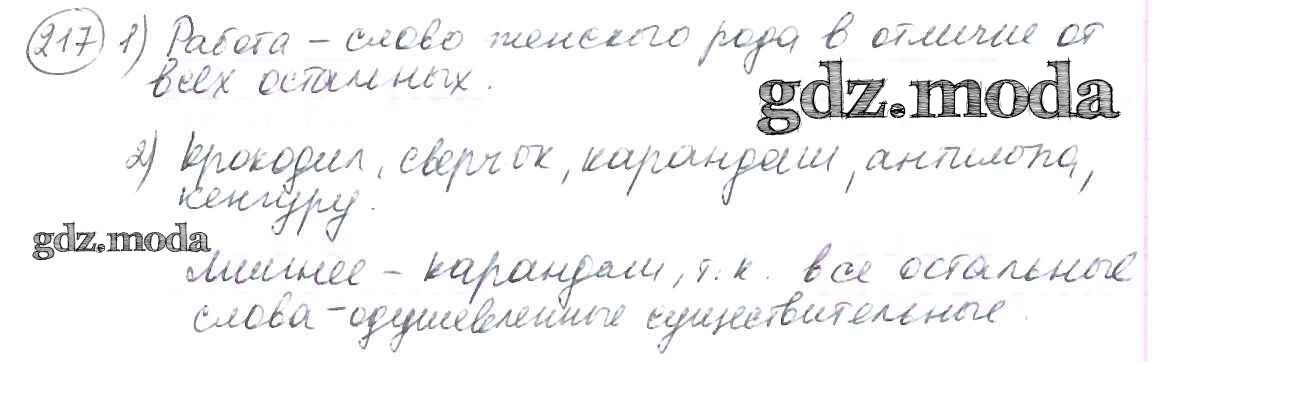 217 1) Работа – слово женского рода в отличие от
всех остальных.
gdz.moda
2) Крокодил, сверчок, карандаш, антилопа,
кенгуру.
gdz.moda
Лишнее – карандаш, т.к. все остальные
слова – одушевленные существительные.